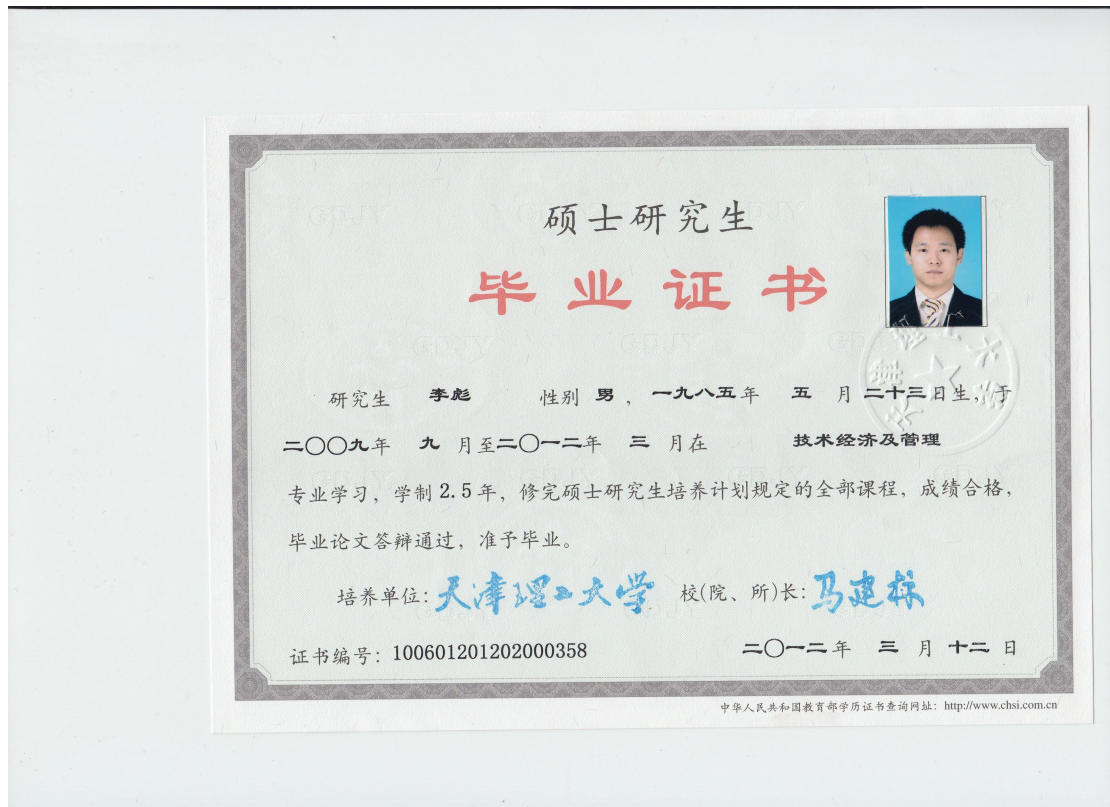 硕士研究生
毕业证书
研究生 李彪 性别 男 ，一九八五年 五 月 二十三日生，于
二〇〇九年 九 月至二〇一二年 三 月在 技术经济及管理
专业学习，学制 2.5 年，修完硕士研究生培养计划规定的全部课程，成绩合格，
毕业论文答辩通过，准予毕业。
培养单位：天津理工大学 校(院、所)长：马建标
证书编号：100601201202000358 二〇一二年 三 月 十二 日
中华人民共和国教育部学历证书查询网址：http://www.chsi.com.cn